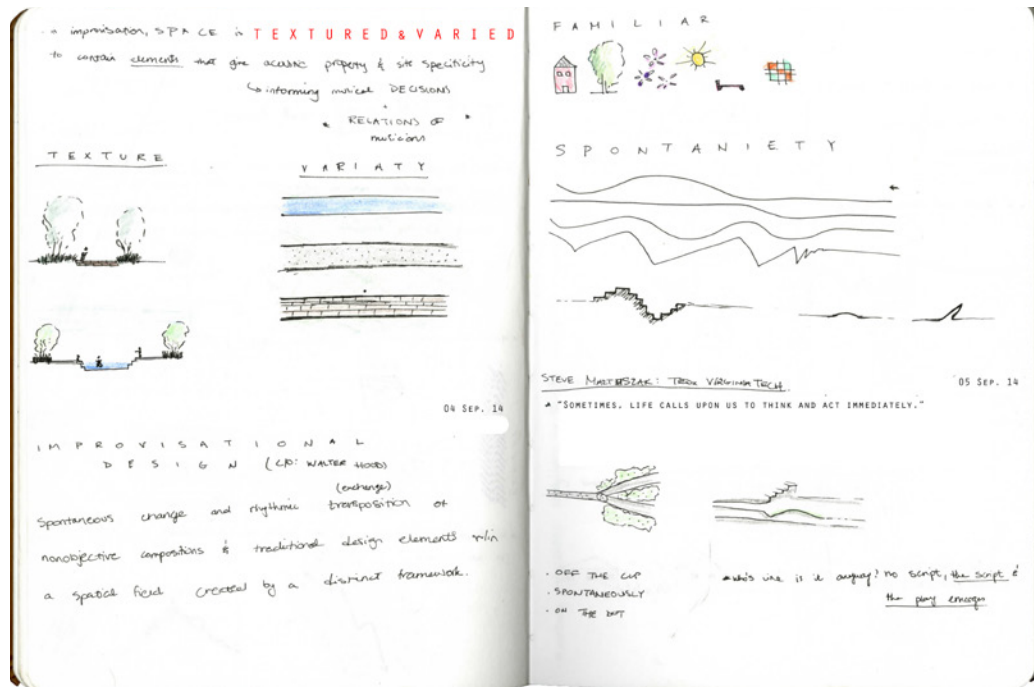 a improvisation, SPACE is TEXTURED&VARIED
to contain elements that give acoustic property & site specificity
informing musical DECISIONS
RELATIONS OF
musicians
TEXTURE
VARIATY
04 SEP. 14
IMPROVISATIONAL
DESIGN (C/O: WALTER HOOD)
(exchange)
Spontaneous change and rhythmic transposition of
nonobjective compositions & traditional design elements w/in
a spatial field created by a distinct framework.
FAMILIAR
SPONTANIETY
STEVE MATUSZAK: TEDX VIRGINIA TECH
05 SEP. 14
"SOMETIMES, LIFE CALLS UPON US TO THINK AND ACT IMMEDIATELY."
. OFF THE CUP
. SPONTANEOUSLY
. ON THE
who's line is it anyway? no script, the script &
the play emerges